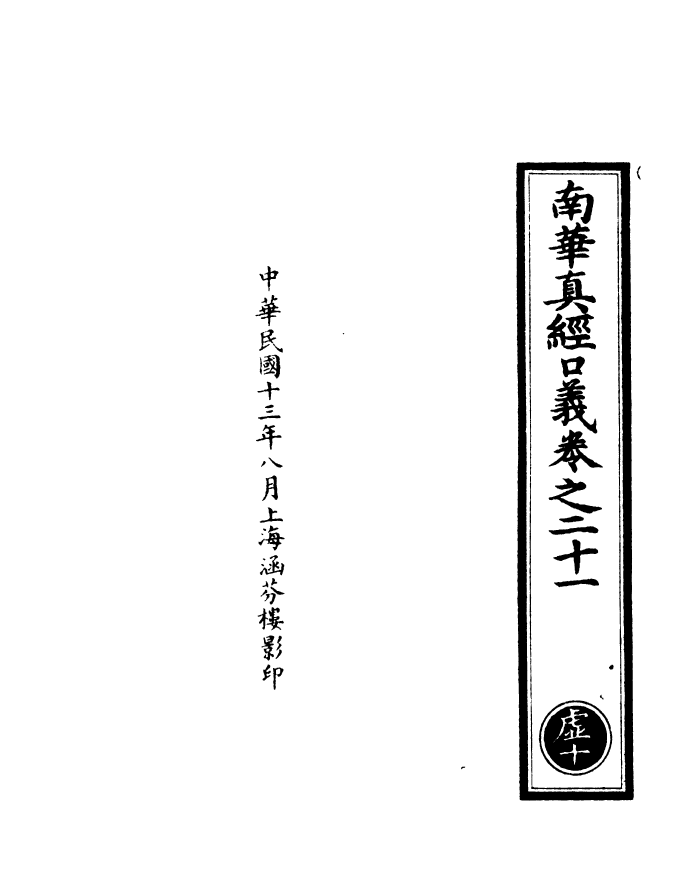 南華真經口義卷之二十一
虛十
中華民國十三年八月上海涵芬樓影印